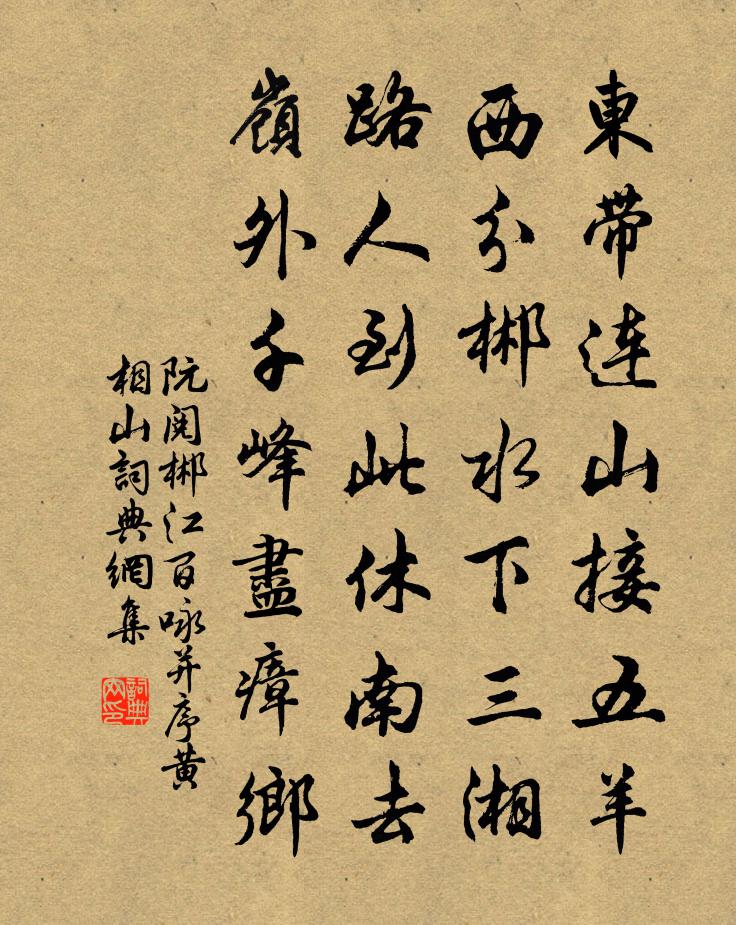 東帶連山接五羊
西分郴水下三湘
路人到此休南去
嶺外千峰盡瘴鄉
阮閱郴江百咏并序黃
相山詞典網集
詞典
网印